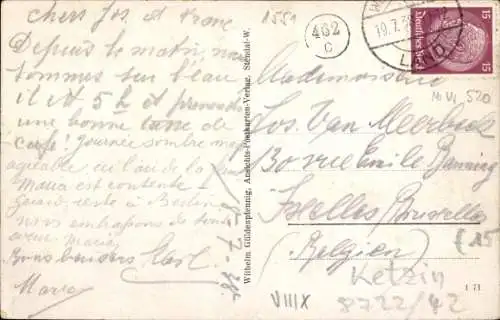 chers Jos et Franc
Depuis le matin nous
sommes sur l'eau
il est 5 h et prenons
une bonne tasse de
café! Journée sombre mais
agréable
Maria est contente
Gérard reste à Berlin
nous embrassons de tout
cœur Maria
Bons baisers Carl
Maria
18-7-38
1551
462
C
19.7.38
LAND
Deutsches Reich
15
15
Mi Vi 520
Mademoiselle
Jos. Van Meerbeek
Bo Emile Banning
Ixelles (Bruxelles
(Belgien)
(15
Ketzin
VIIIX
8722/42
1 71
Wilhelm Güldenpfennig, Ansichts-Postkarten-Verlag, Stendal-W.